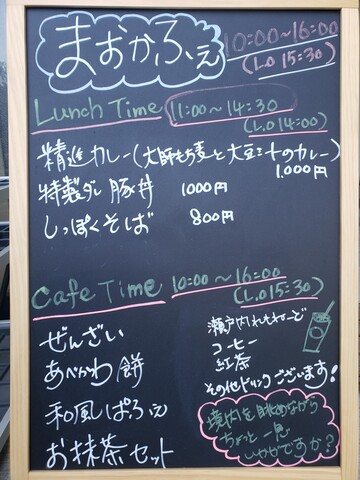 まおかふぇ
10:00~16:00
(L.O 15:30)
Lunch Time 11:00~14:30
(L.O 14:00)
精進カレー(大師もち麦と大豆ミートのカレー)
1,000円
特製ダレ豚丼 1000円
しっぽくそば 800円
Cafe Time 10:00~16:00
(L.O 15:30)
ぜんざい
あべかわ餅
和風ぱふぇ
お抹茶セット
瀬戸内れもねーど
コーヒー
紅茶
その他ドリンクございます!
境内を眺めながら
ちょっと一息
いかがですか?